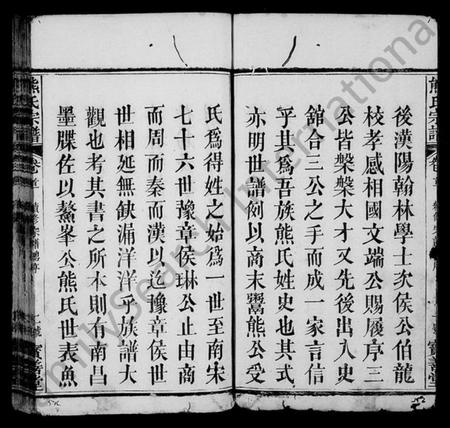 熊氏宗譜
後漢陽翰林學士次侯公伯龍
枝孝感相國文端公賜履序三
公皆槃槃大才又先後出入史
館合三公之手而成一家言信
乎其爲吾族熊氏姓史也其式
亦明世譜例以商末鬻熊公受
氏爲得姓之始爲一世至南宋
七十六世豫章侯琳公止由商
而周而秦而漢以迄豫章侯世
世相延無缺漏洋洋乎族譜大
觀也考其書之所本則有南昌
墨牒佐以鰲峯公熊氏世表魚
熊氏宗譜
卷首
寶善堂
FamilySearch International